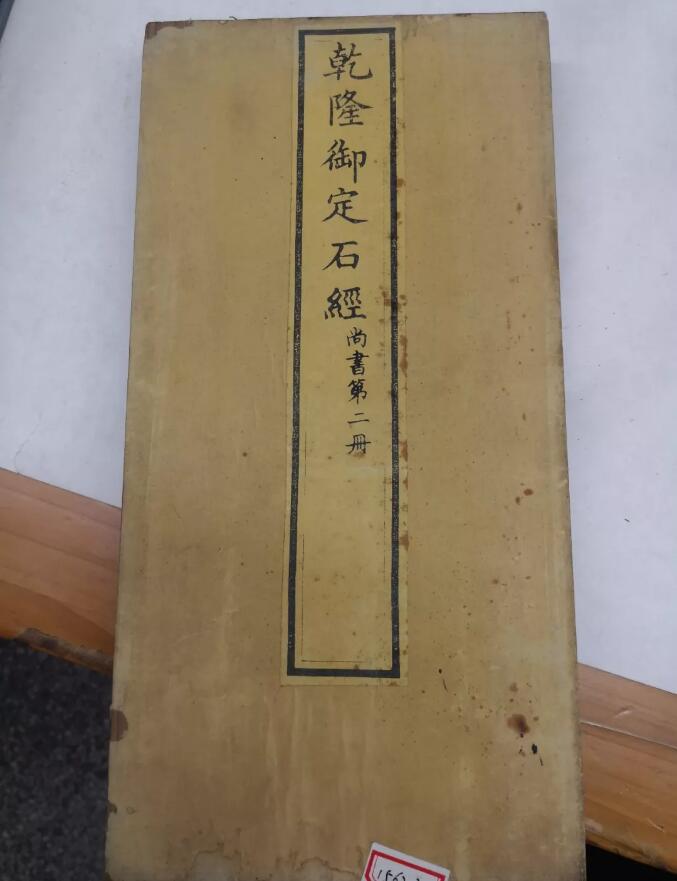 乾隆御定石經
尚書第二冊